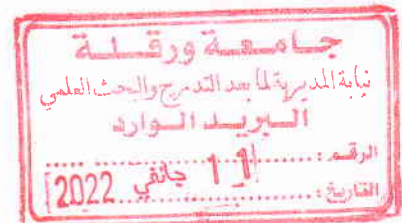 جامعة ورقلة
نيابة المديرية لما بعد التدرج والبحث العلمي
البريد الوارد
الرقم :
التاريخ : 11 جانفي 2022